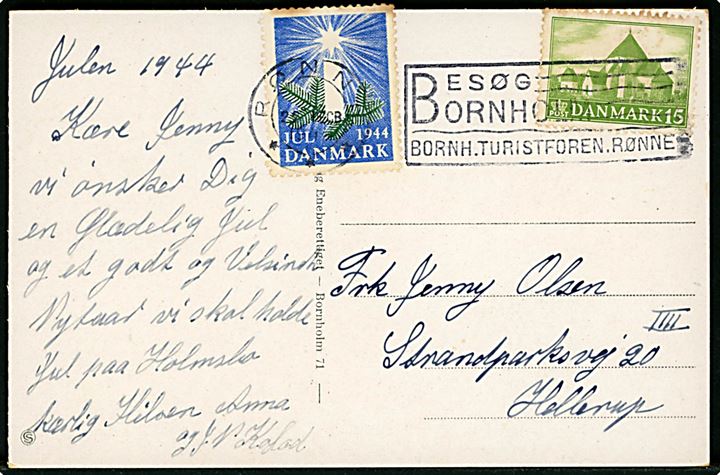 Julen 1944
Kære Jenny
vi ønsker Dig
en Glædelig Jul
og et godt og
Nytaar vi skal holde
Jul paa
kærlig Hilsen Anna
og
RØNNE
JUL 1944
DANMARK
BESØG
BORNHO
BORNH.TURISTFOREN.RØNNE
POST DANMARK 15
g Eneberettiget — Bornholm 71
Frk Jenny Olsen
IIII
Strandparksvej 20
Hellerup
S